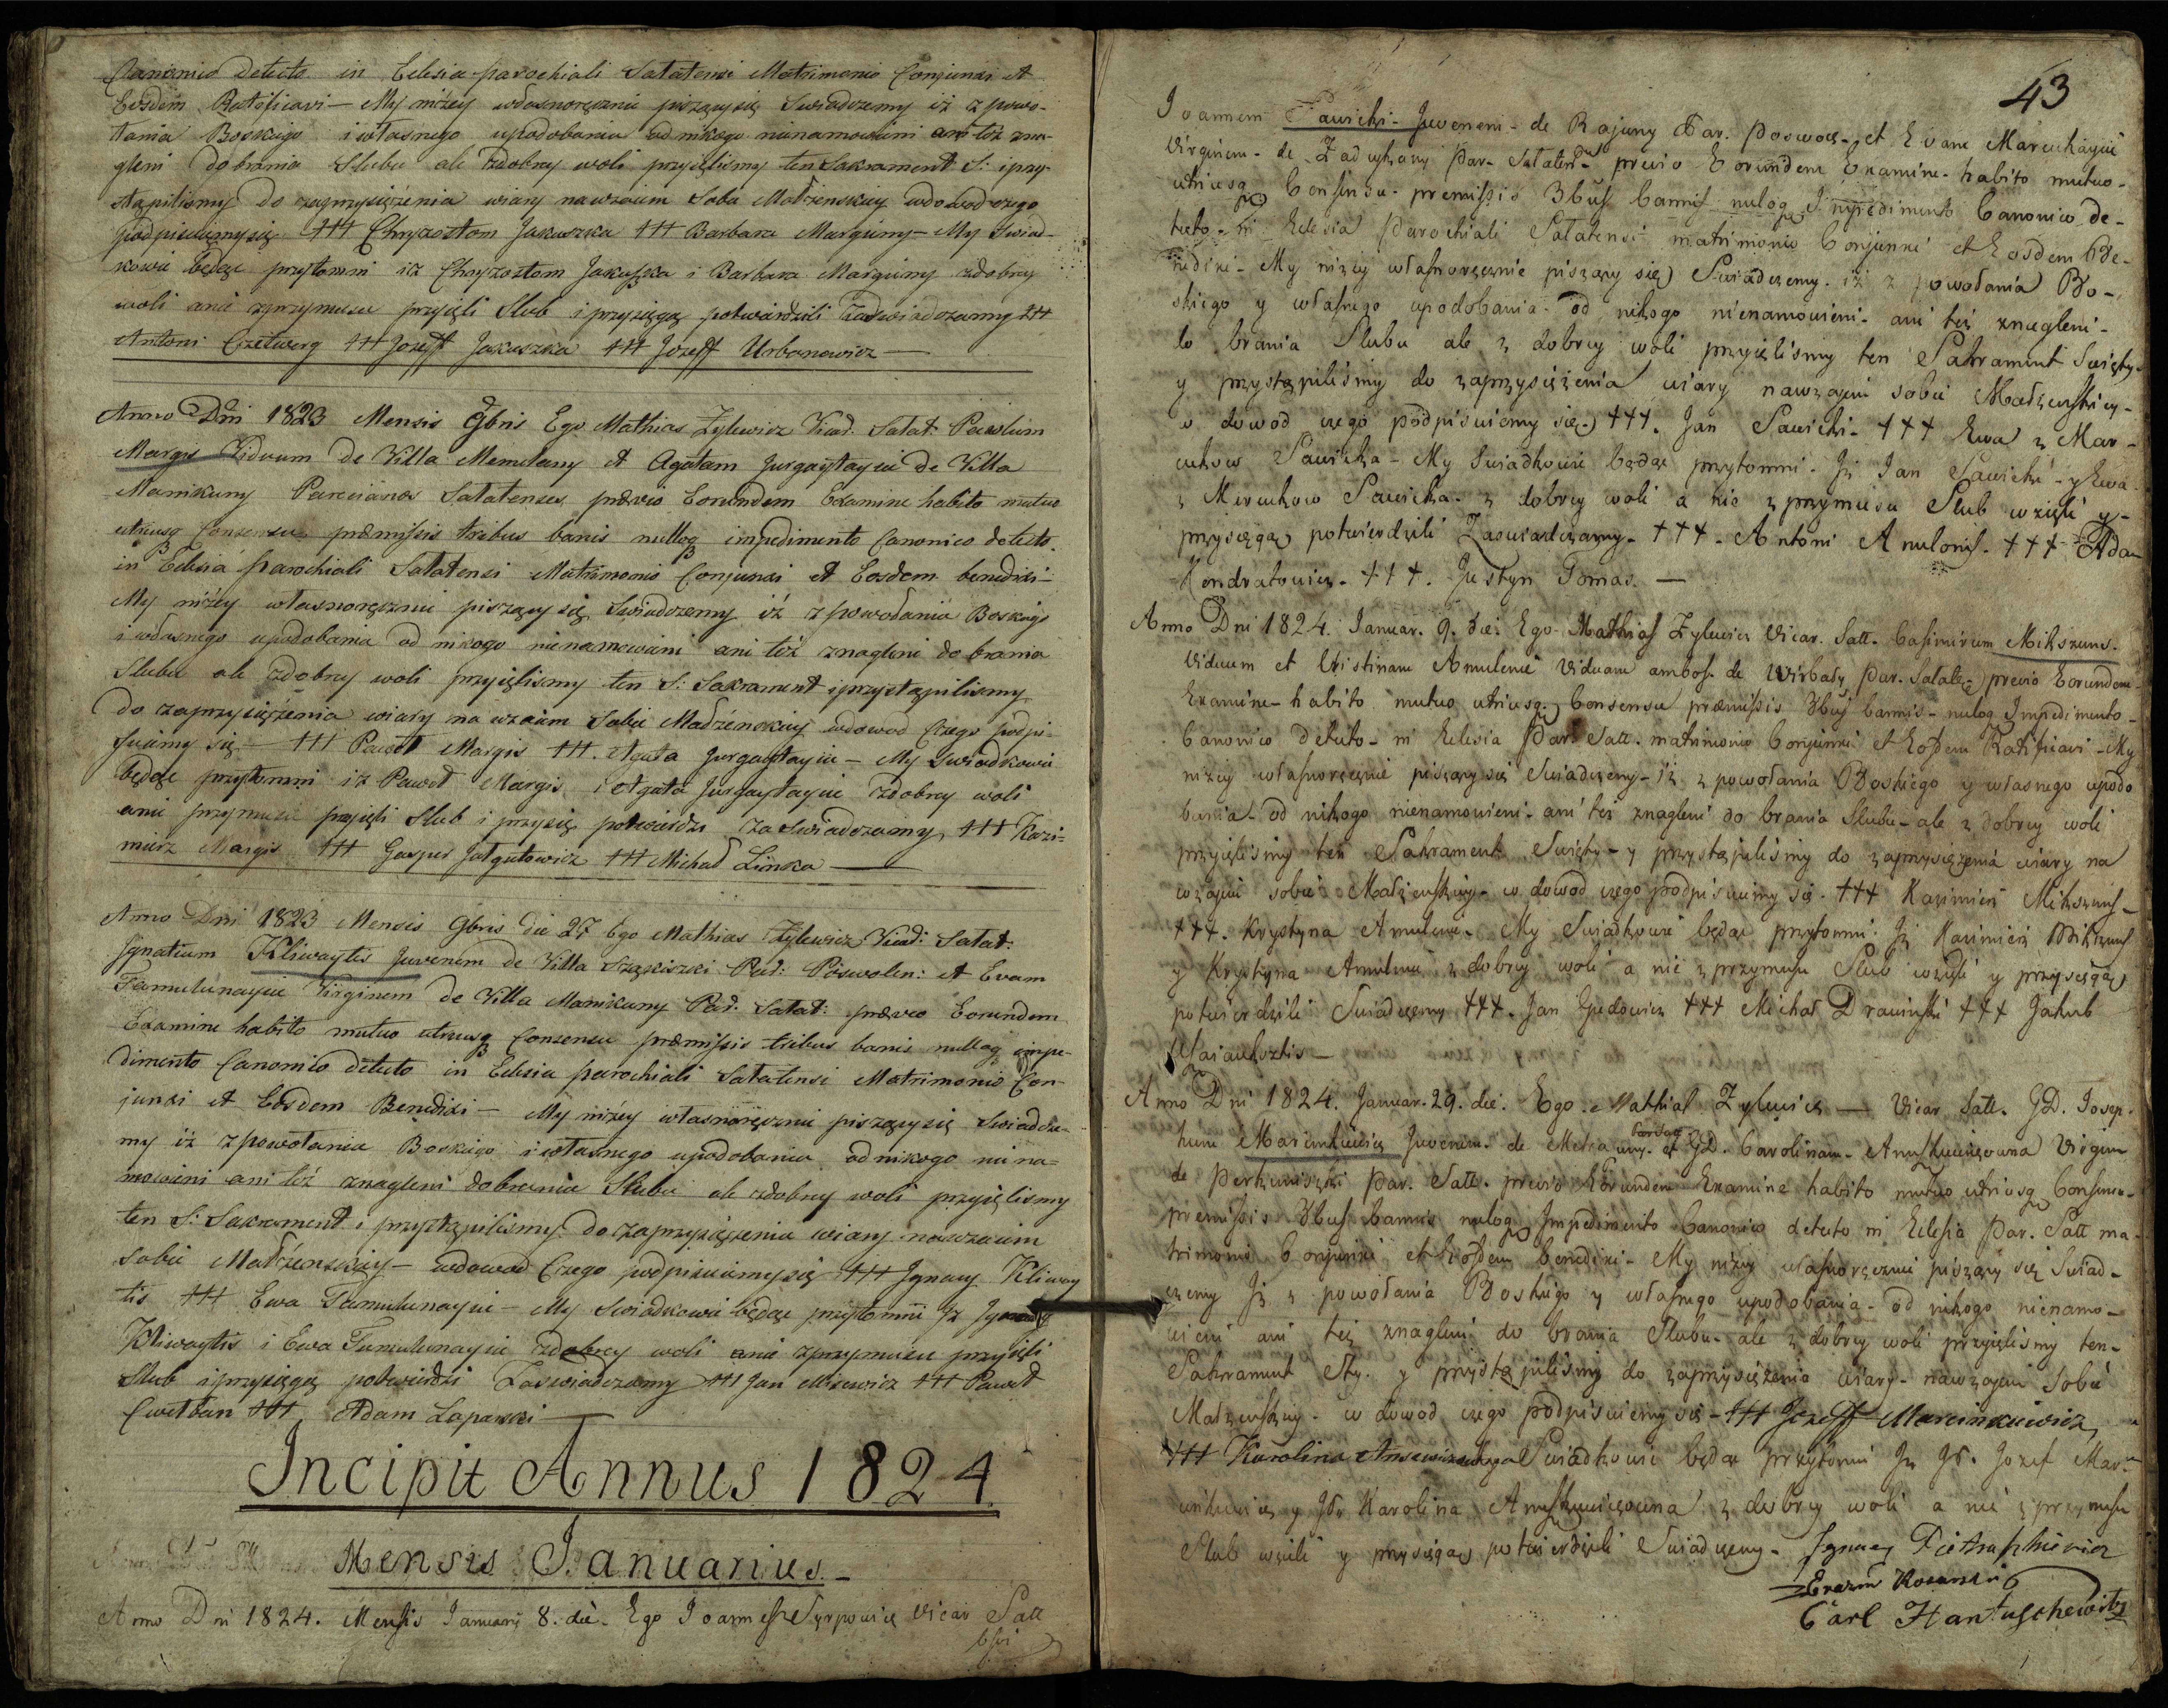 Canonico detecto in Eclesia parochiali Satatensi Matrimonio Conjunxi et
Eosdem Ratificavi — My niżey własnoręcznie piszący się Swiadczemy iż z powo-
łania Boskiego i własnego upodobania od nikogo nienamowieni ani też zna-
gleni do brania Slubu ale zdobrey woli przyięlismy ten Sakrament S: i przy-
stąpilismy do zaprzysiężenia wiary nawzaiem Sobie Małżenskiey wdowod czego
podpisuiemy się ††† Chryzostom Jakuszka ††† Barbara Margiuny — My Swiad-
kowie będąc przytomni iz Chryzostom Jakuszka i Barbara Margiuny zdobrey
woli anie zprzymusu przyięli Slub i przysięgę potwierdzili Zaswiadczamy †††
Antoni Czetwerg ††† Jozeff Jakuszka ††† Jozeff Urbanowicz —
Anno Dni 1823 Mensis 9bris Ego Mathias Zylewicz Vicar. Satat. Pawlum
Margis Viduum de Villa Memulany et Agatam Jurgaytaycie de Villa
Manikuny Parocianos Satatenses prævio Eorundem Examine habito mutuo
utriusq Consensu præmissis tribus banis nulloq impedimento Canonico detecto
in Eclesia parochiali Satatensi Matrimonio Conjunxi et Eosdem benedixi —
My niżey własnoręcznie piszący się Swiadczemy iż z powołania Boskiego
i własnego upodobania od nikogo nienamowieni ani też znagleni do brania
Slubu ale zdobrey woli przyięlismy ten S: Sakrament i przystąpilismy
do zaprzysiężenia wiary na wzaiem Sobie Małżenskiey wdowod Czego podpi-
suiemy się — ††† Paweł Margis ††† Agata Jurgaytaycie — My Swiadkowie
będąc przytomni iz Paweł Margis i Agata Jurgaytaycie zdobrey woli
anie przymusu przyięli Slub i przysię potwierdzi zaswiadczamy ††† Kazi-
mierz Margis ††† Gasper Jałgutowicz ††† Michał Linka —
Anno Dni 1823 Mensis 9bris die 27 Ego Mathias Zylewicz Vicar: Satat:
Ignatium Kliwaytis Juvenem de Villa Par: Poswolen: et Evam
Tamulunaycie Virginem de Villa Manikuny Par: Satat: prævio Eorundem
Examine habito mutuo utriusq Consensu præmissis tribus banis nulloq impe-
dimento Canonico detecto in Eclesia parochiali Satatensi Matrimonio Con-
junxi et Eosdem Benedixi — My niżey własnoręcznie piszący się Swiadcze-
my iż z powołania Boskiego i własnego upodobania od nikogo niena=
mowieni ani też znagleni do brania Slubu ale zdobrey woli przyięlismy
ten S: Sakrament i przystąpilismy do zaprzysiężenia wiary nawzaiem
Sobie Małżenskiey — wdowod Czego podpisuiemy się ††† Ignacy Kliway
tis ††† Ewa Tamulunaycie — My Swiadkowie będąc przytomni Iz Ignacy
Kliwaytis i Ewa Tamulunaycie zdobrey woli anie zprzymusu przyięli
Slub i przysięgę potwierdzi Zaswiadczamy ††† Jan Misewicz ††† Paweł
Cwetban ††† Adam Laparski —
Incipit Annus 1824
Mensis Januarius. —
Anno Dni 1824. Mensis Januarij 8. die. Ego Joannes Syrpowicz Vicar Satt
43
Joannem Sawicki Juvenem de Rajuny Par. Poswol. et Evam Marcukaycie
Virginem de Zadeykany Par. Sataten. previo Eorundem Examine habito mutuo
utriusq Consensu premissis 3bus bannis nuloq Impedimento Canonico de-
tecto in Eclesia Parochiali Satatensi matrimonio Conjunxi et Eosdem Be-
nedixi — My niżey własnoręcznie piszący się Swiadczemy iż z powołania Bo-
skiego y własnego upodobania od nikogo nienamowieni ani też znagleni
do brania Slubu ale z dobrey woli przyięliśmy ten Sakrament Swięty
y przystąpiliśmy do zaprzysiężenia wiary nawzajem sobie Małżenskiey
w dowod czego podpisuiemy się ††† Jan Sawicki ††† Ewa z Mar-
cukow Sawicka — My Swiadkowie będąc przytomni Iż Jan Sawicki y Ewa
z Marcukow Sawicka z dobrey woli a nie z przymusu Slub wzięli y
przysięgą potwierdzili Zaswiadczamy ††† Antoni Anulonis ††† Adam
Kondratowicz ††† Justyn Tomas —
Anno Dni 1824. Januar. 9. die. Ego Mathias Zylewicz Vicar. Satt. Casimirum Mikszuns
Viduum et Cristinam Amulenie Viduam ambos de Wirbały Par. Satate. previo Eorundem
Examine habito mutuo utriusq Consensu præmissis 3bus bannis nuloq Impedimento
Canonico detecto in Eclesia Par. Satt. matrimonio Conjunxi et Eosdem Ratificavi — My
niżey własnoręcznie piszący się Swiadczemy iż z powołania Boskiego y własnego upodo
bania od nikogo nienamowieni ani też znagleni do brania Slubu ale z dobrey woli
przyięliśmy ten Sakrament Swięty y przystąpiliśmy do zaprzysiężenia wiary na
wzajem sobie Małżenskiey w dowod czego podpisuiemy się ††† Kazimierz Mikszuns
††† Krystyna Amulenie My Swiadkowie będąc przytomni Iż Kazimierz Mikszuns
y Krystyna Amulenie z dobrey woli a nie z przymusu Slub wzięli y przysięgą
potwierdzili Swiadczemy ††† Jan Gedowicz ††† Michał Drawinski ††† Jakub
Anno Dni 1824. Januar. 29. die. Ego Mathias Zylewicz — Vicar Satt. GD. Josep-
hum Marcinkiewicz Juvenem de et GD. Carolinam Anuszkiewiczowna Virgin
de Par. Satt. previo Eorundem Examine habito mutuo utriusq Consensu
premissis 3bus bannis nuloq Impedimento Canonico detecto in Eclesia Par. Satt ma-
trimonio Conjunxi et Eosdem benedixi — My niżey własnoręcznie piszący się Swiad-
czemy Iż z powołania Boskiego y własnego upodobania od nikogo nienamo-
wieni ani też znagleni do brania Slubu ale z dobrey woli przyięliśmy ten
Sakrament Sty. y przystąpiliśmy do zaprzysiężenia wiary nawzajem Sobie
Małżenskiey w dowod czego podpisuiemy się — ††† Jozeff Marcinkiewicz
††† Karolina Swiadkowie będąc przytomni Iż Jozef Mar-
cinkiewicz y Karolina Anuszkiewiczowna z dobrey woli a nie z przymusu
Slub wzieli y przysięgą potwierdzili Swiadczemy — Ignacy Pietraszkiewicz
Erazm Kosarski
Carl Hantuschewitz